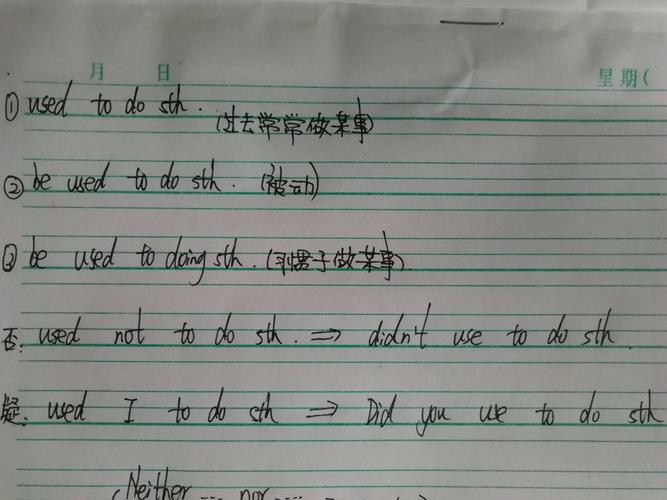 月 日 星期(
① used to do sth. (过去常常做某事)
② be used to do sth. (被动)
③ be used to doing sth. (习惯于做某事).
否: used not to do sth. ⇒ didn't use to do sth.
疑: used I to do sth ⇒ Did you use to do sth
(Neither .... nor .....